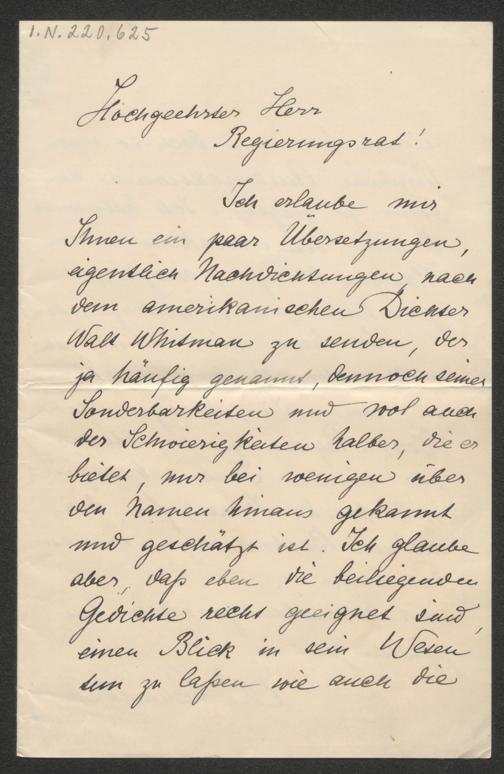 I.N.220.625
Hochgeehrter Herr
Regierungsrat!
Ich erlaube mir
Ihnen ein paar Übersetzungen,
eigentlich Nachdichtungen nach
dem amerikanischen Dichter
Walt Whitman zu senden, der
ja häufig genannt, dennoch seiner
Sonderbarkeiten und wol auch
der Schwierigkeiten halber, die er
bietet, nur bei wenigen über
den Namen hinaus gekannt
und geschätzt ist. Ich glaube
aber, daß eben die beiliegenden
Gedichte recht geeignet sind,
einen Blick in sein Wesen
tun zu laßen wie auch die